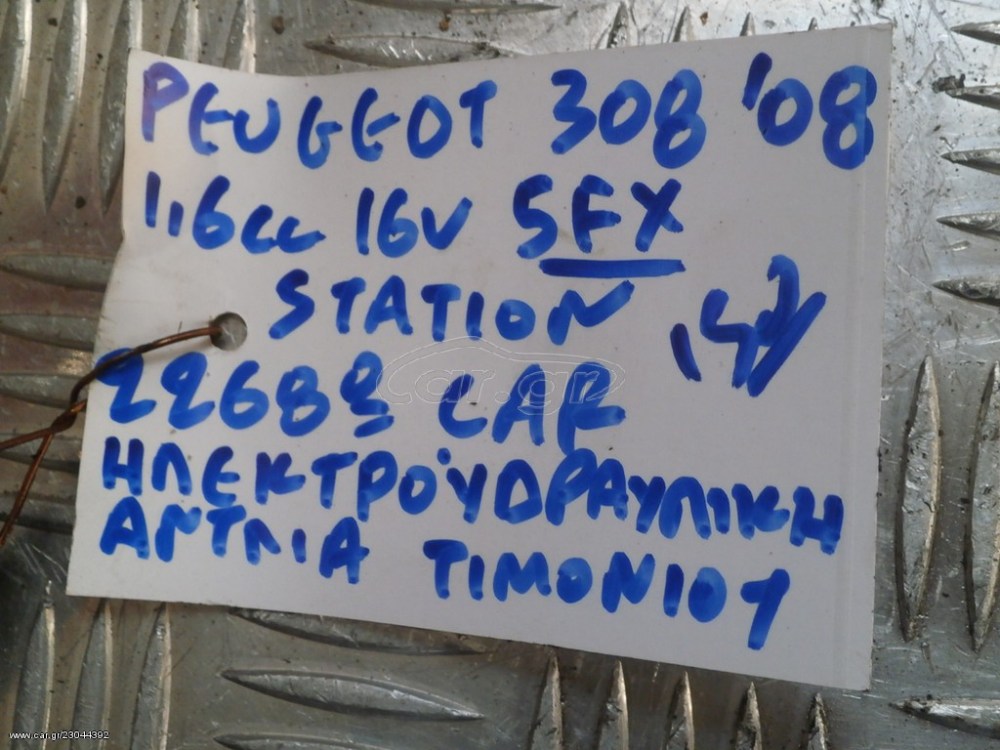 PEUGEOT 308 '08
1,6cc 16V 5FX
STATION
22688 CAR
ΗΛΕΚΤΡΟΫΔΡΑΥΛΙΚΗ
ΑΝΤΛΙΑ ΤΙΜΟΝΙΟΥ
car.gr
www.car.gr/23044392